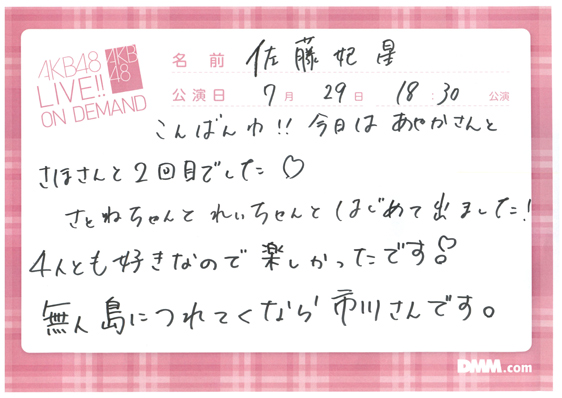 AKB48
LIVE!!
ON DEMAND
AKB
48
名 前 佐藤妃星
公演日 7月 29日 18:30 公演
こんばんわ!! 今日は あやかさんと
さほさんと2回目でした♡
さとねちゃんと れいちゃんと はじめて出ました!
4人とも好きなので楽しかったです♡
無人島につれてくなら 市川さんです。
DMM.com